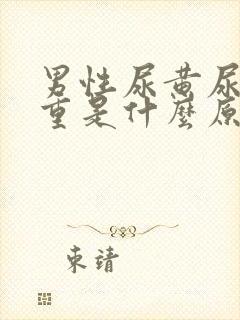 男性尿黄尿
重是什麼原
束靖